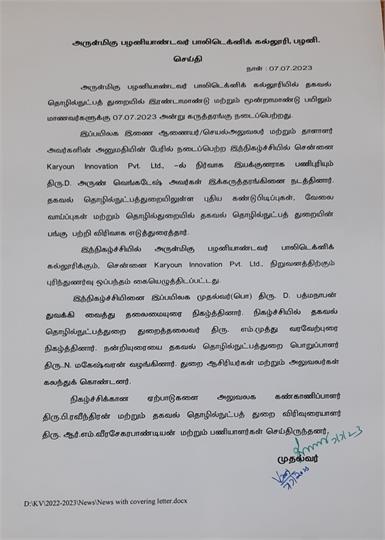 அருள்மிகு பழனியாண்டவர் பாலிடெக்னிக் கல்லூரி, பழனி.
செய்தி
நாள் : 07.07.2023
அருள்மிகு பழனியாண்டவர் பாலிடெக்னிக் கல்லூரியில் தகவல்
தொழில்நுட்பத் துறையில் இரண்டாமாண்டு மற்றும் மூன்றாமாண்டு பயிலும்
மாணவர்களுக்கு 07.07.2023 அன்று கருத்தரங்கு நடைப்பெற்றது.
இப்பயிலக இணை ஆணையர்/செயல்அலுவலர் மற்றும் தாளாளர்
அவர்களின் அனுமதியின் பேரில் நடைப்பெற்ற இந்நிகழ்ச்சியில் சென்னை
Karyoun Innovation Pvt. Ltd., –ல் நிர்வாக இயக்குனராக பணிபுரியும்
திரு.D. அருண் வெங்கடேஷ் அவர்கள் இக்கருத்தரங்கினை நடத்தினார்.
தகவல் தொழில்நுட்பத்துறையிலுள்ள புதிய கண்டுபிடிப்புகள், வேலை
வாய்ப்புகள் மற்றும் தொழில்துறையில் தகவல் தொழில்நுட்பத் துறையின்
பங்கு பற்றி விரிவாக எடுத்துரைத்தார்.
இந்நிகழ்ச்சியில் அருள்மிகு பழனியாண்டவர் பாலிடெக்னிக்
கல்லூரிக்கும், சென்னை Karyoun Innovation Pvt. Ltd., நிறுவனத்திற்கும்
புரிந்துணர்வு ஒப்பந்தம் கையெழுத்திடப்பட்டது.
இந்நிகழ்ச்சியினை இப்பயிலக முதல்வர்(பொ) திரு. D. பத்மநாபன்
துவக்கி வைத்து தலைமையுரை நிகழ்த்தினார். நிகழ்ச்சியில் தகவல்
தொழில்நுட்பத்துறை துறைத்தலைவர் திரு. எம்.முத்து வரவேற்புரை
நிகழ்த்தினார். நன்றியுரையை தகவல் தொழில்நுட்பத்துறை பொறுப்பாளர்
திரு..N. மகேஷ்வரன் வழங்கினார். துறை ஆசிரியர்கள் மற்றும் அலுவலர்கள்
கலந்துக் கொண்டனர்.
நிகழ்ச்சிக்கான ஏற்பாடுகளை அலுவலக கண்காணிப்பாளர்
திரு.பி.ரவீந்திரன் மற்றும் தகவல் தொழில்நுட்பத் துறை விரிவுரையாளர்
திரு. ஆர்.எம்.வீரசேகரபாண்டியன் மற்றும் பணியாளர்கள் செய்திருந்தனர்.
முதல்வர்
D:\KV\2022-2023\News\News with covering letter.docx